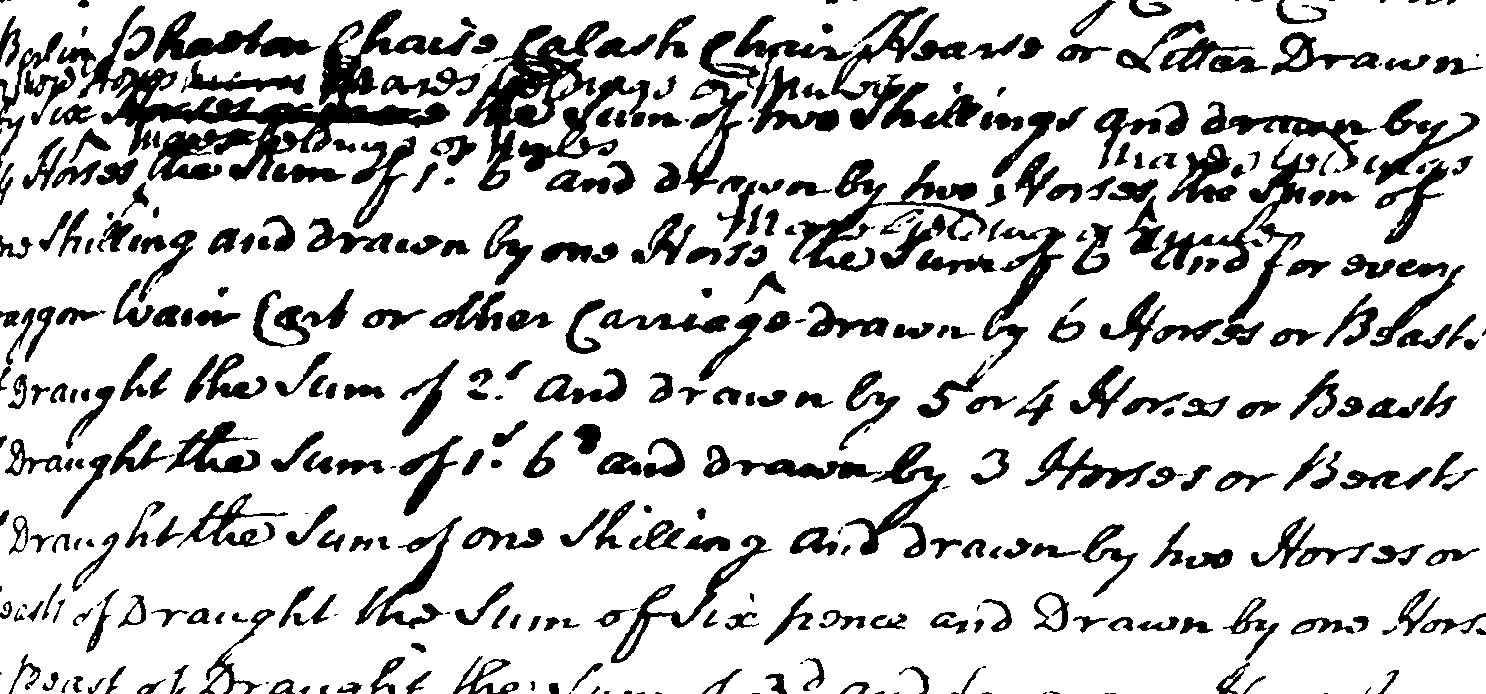 Berlin Phaeton Chaise Calash Chair Hearse or Litter Drawn
Mares Geldings or Mules
by Six the Sum of two Shillings and drawn by
Mares Geldings or Mules
4 Horses the Sum of 1s. 6d and drawn by two Horses the Sum of
Mares Geldings
one Shilling and drawn by one Horse the Sum of 6d and for every
Mare Gelding or Mule
Waggon Wain Cart or other Carriage drawn by 6 Horses or Beasts
Draught the Sum of 2s. and drawn by 5 or 4 Horses or Beasts
Draught the Sum of 1s. 6d and drawn by 3 Horses or Beasts
Draught the Sum of one Shilling and drawn by two Horses or
Beasts of Draught the Sum of Six pence and Drawn by one Horse
Beast of Draught the Sum of 3d and